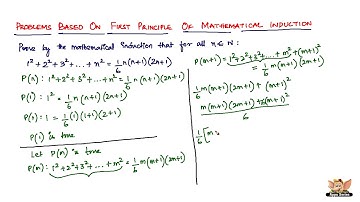 PROBLEMS BASED ON FIRST PRINCIPLE OF MATHEMATICAL INDUCTION
Prove by the mathematical Induction that for all n ∈ N :
1² + 2² + 3² + ... + n² = 1/6 n (n+1) (2n+1)
P(n) : 1² + 2² + 3² + ... + n² = 1/6 n (n+1) (2n+1)
P(1) : 1² = 1/6 n (n+1) (2n+1)
P(1) : 1 = 1/6 (1) (1+1) (2+1)
P(1) is true
Let P(m) is true
P(m) : 1² + 2² + 3² + ... + m² = 1/6 m(m+1)(2m+1)
P(m+1) = 1² + 2² + 3² + ... + m² + (m+1)²
= 1/6 m (m+1) (2m+1)
1/6 m(m+1) (2m+1) + (m+1)²
m(m+1) (2m+1) + 6(m+1)²
6
1/6 [m